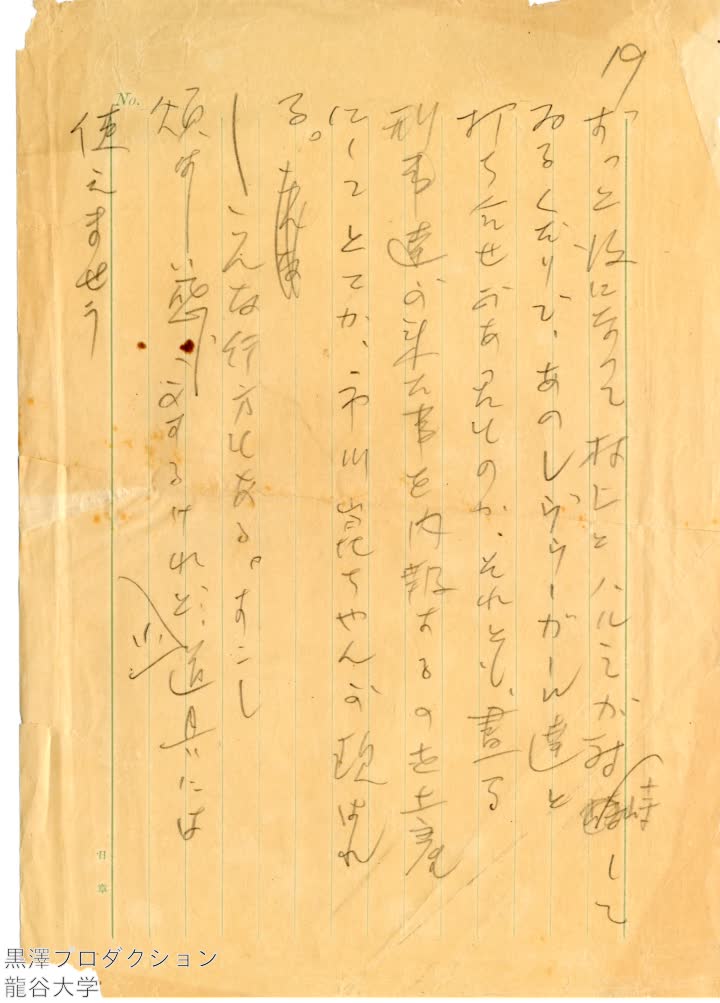 19
ずっと後になって村上とハルミが対峙して
ゐるくだりで、あのレヴウーガール達と
打ち合せがあったものか、それとも、書る
刑事達が来た事を内報するのを土産
にしてとでか、市川崑ちやんが現はれ
る。
しこんな行方もある。すこし
煩すしい感じがするけれど…道具には
使えませう
No.
日章
黒澤プロダクション
龍谷大学